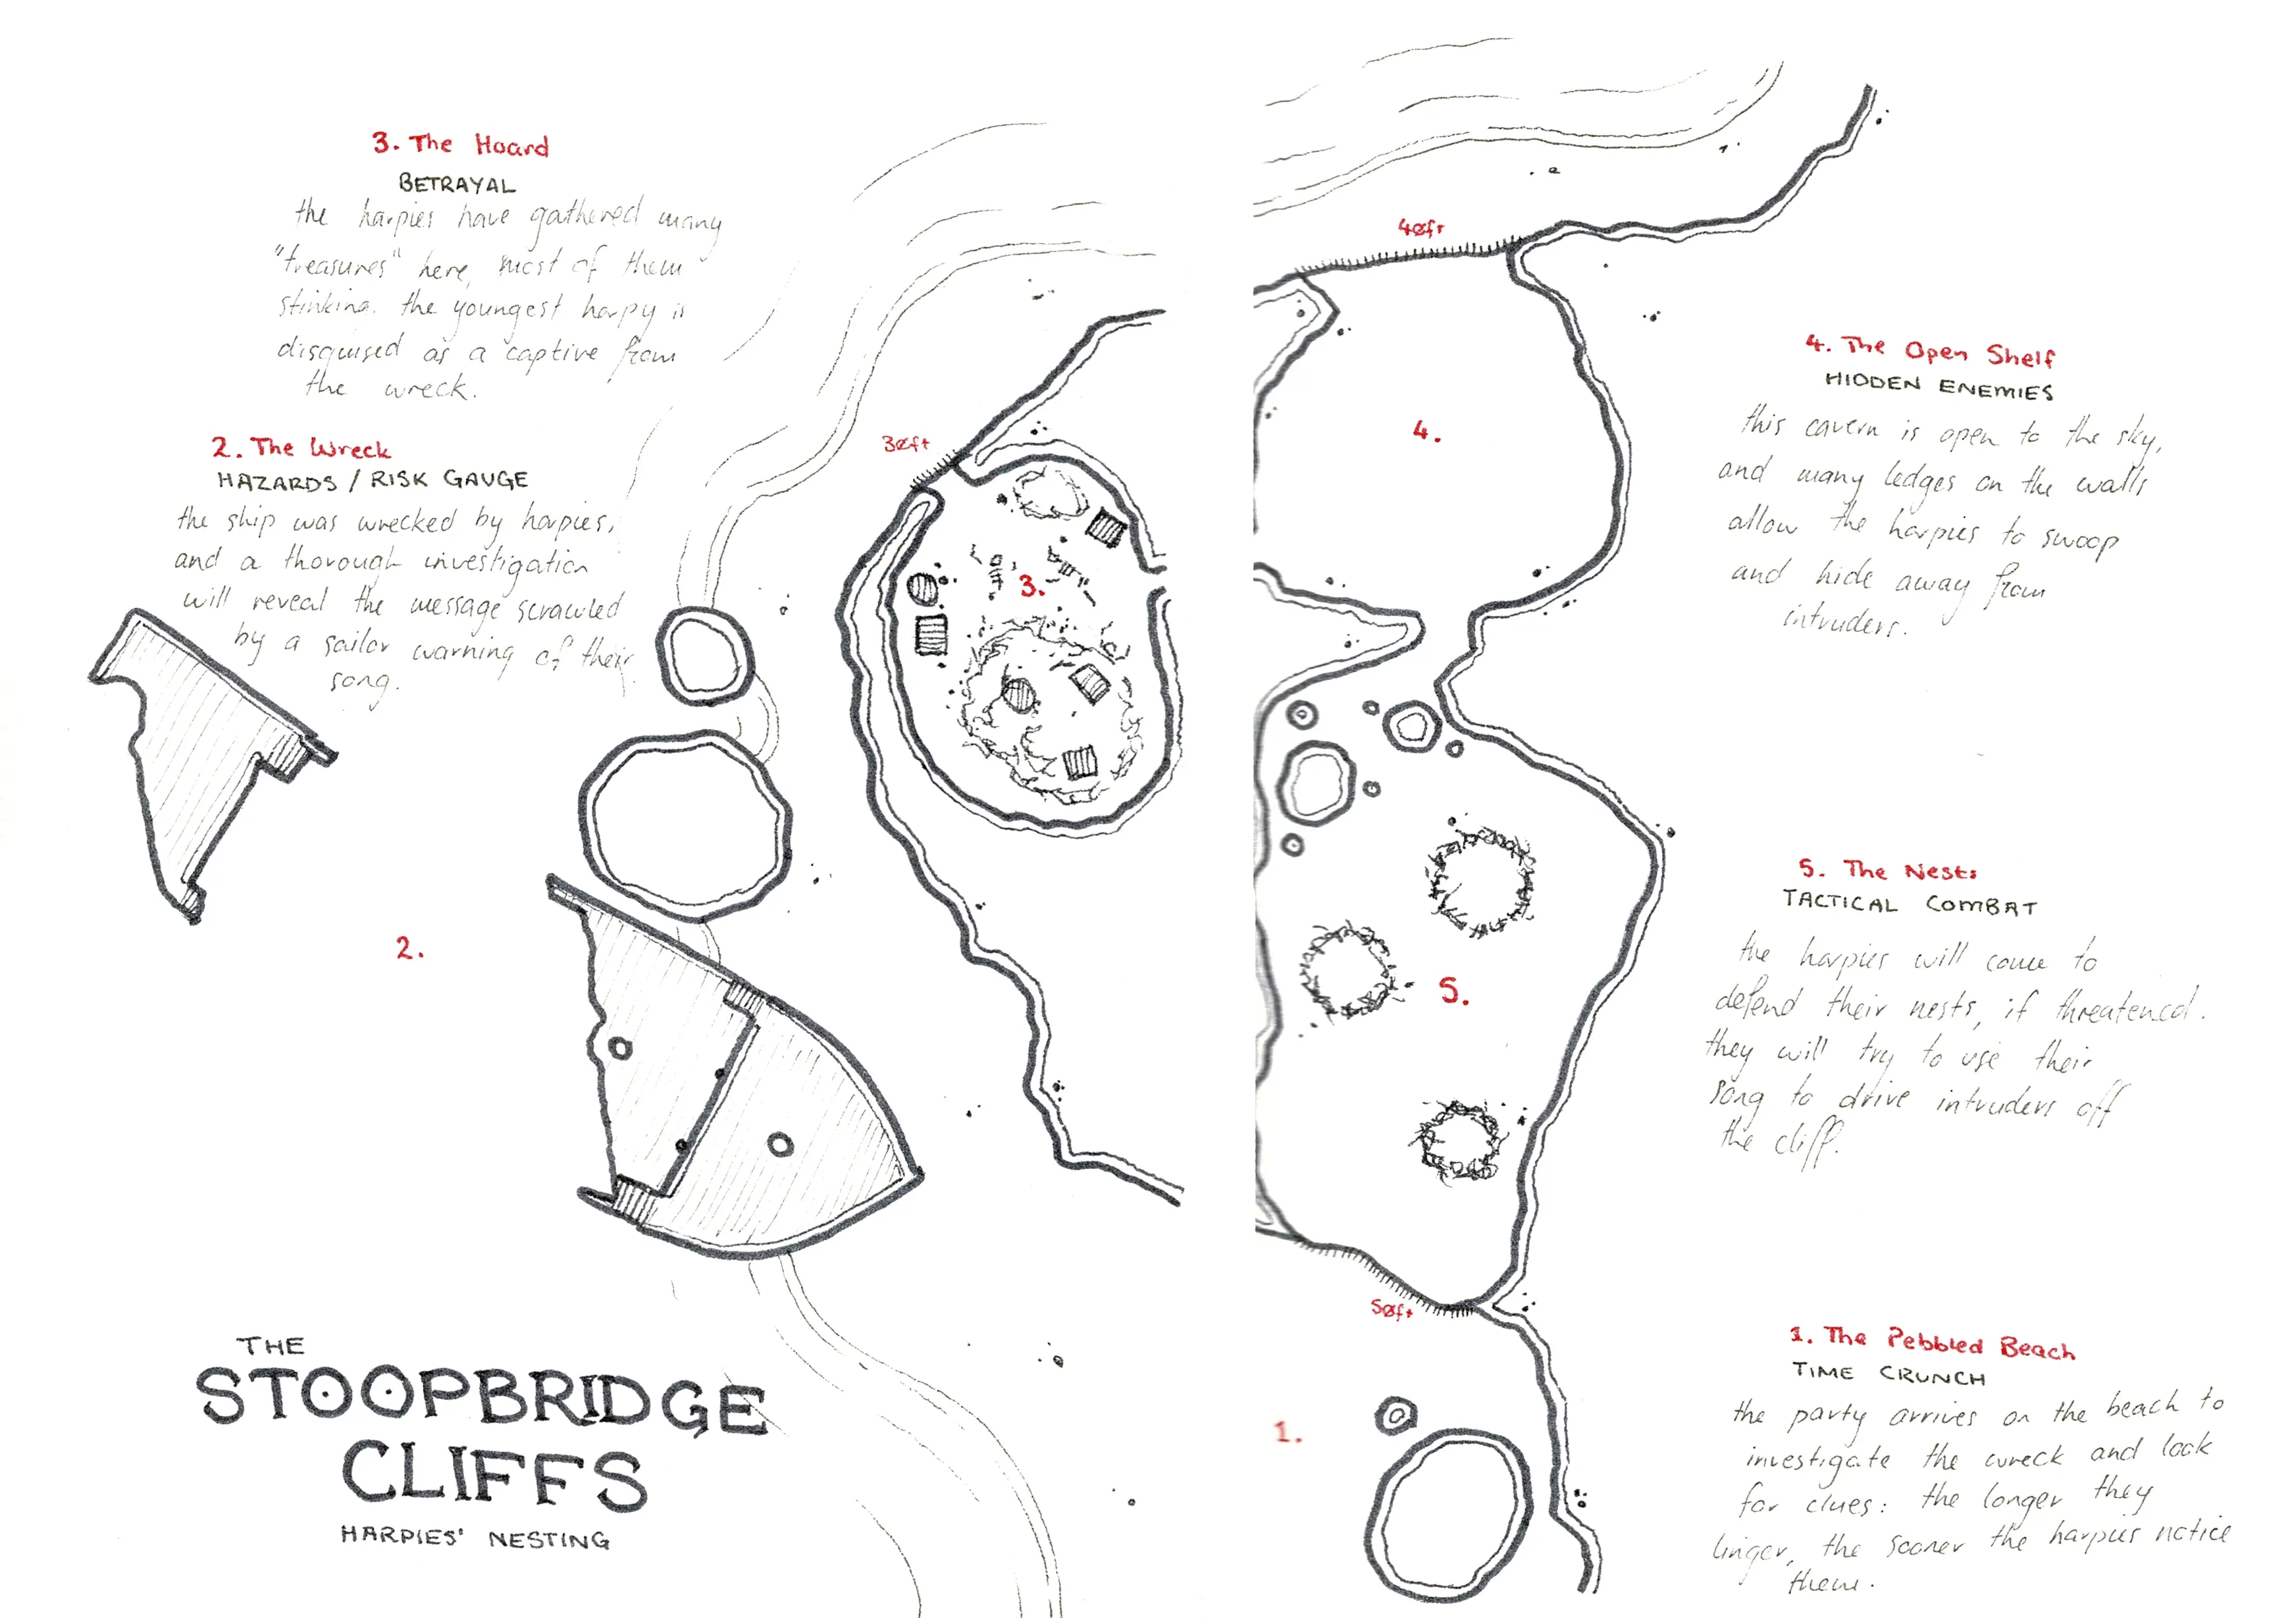 3. The Hoard
BETRAYAL
the harpies have gathered many
"treasures" here, most of them
stinking. the youngest harpy is
disguised as a captive from
the wreck.
2. The Wreck
HAZARDS / RISK GAUGE
the ship was wrecked by harpies,
and a thorough investigation
will reveal the message scrawled
by a sailor warning of their
song.
30ft
3.
2.
THE
STOOPBRIDGE
CLIFFS
HARPIES' NESTING
40ft
4.
4. The Open Shelf
HIDDEN ENEMIES
this cavern is open to the sky,
and many ledges on the walls
allow the harpies to swoop
and hide away from
intruders.
5. The Nests
TACTICAL COMBAT
the harpies will come to
defend their nests, if threatened.
they will try to use their
song to drive intruders off
the cliff.
5.
50ft
1.
1. The Pebbled Beach
TIME CRUNCH
the party arrives on the beach to
investigate the wreck and look
for clues: the longer they
linger, the sooner the harpies notice
them.